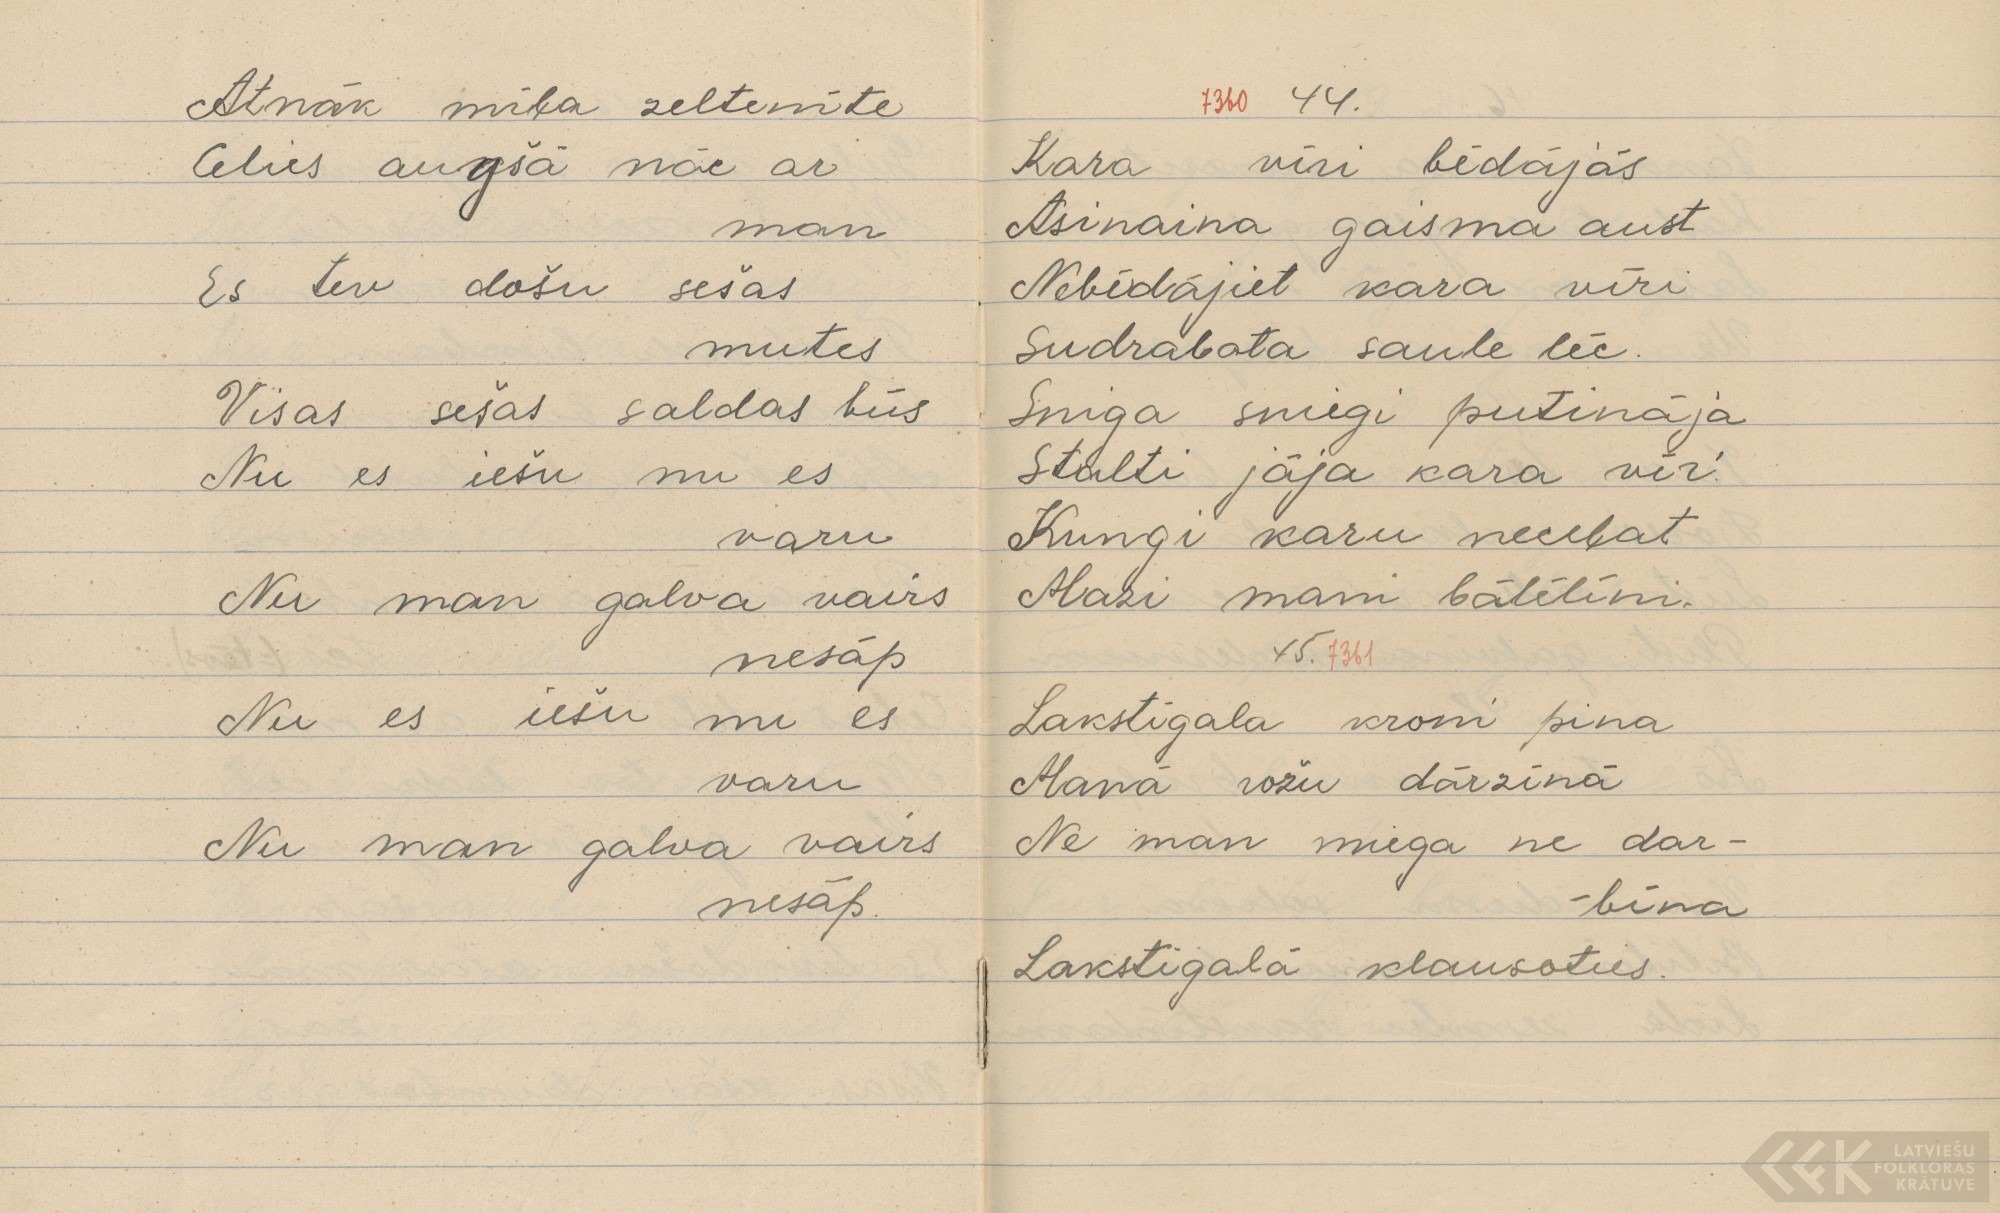 Atnāk mīļa zeltenīte
Celies augšā nāc ar
man
Es tev došu sešas
mutes
Visas sešas saldas būs
Nu es iešu nu es
varu
Nu man galva vairs
nesāp
Nu es iešu nu es
varu
Nu man galva vairs
nesāp.
7360 44.
Kara vīri bēdājās
Asinaina gaisma aust
Nebēdājiet kara vīri
Sudrabota saule lēc.
Sniga sniegi putināja
Stalti jāja kara vīri
Kungi karu necelat
Mazi mani bālēliņi.
45. 7361
Lakstīgala kroni pina
Manā rožu dārziņā
Ne man miega ne dar-
-bīna
Lakstīgalā klausoties.
LATVIEŠU
FOLKLORAS
KRĀTUVE